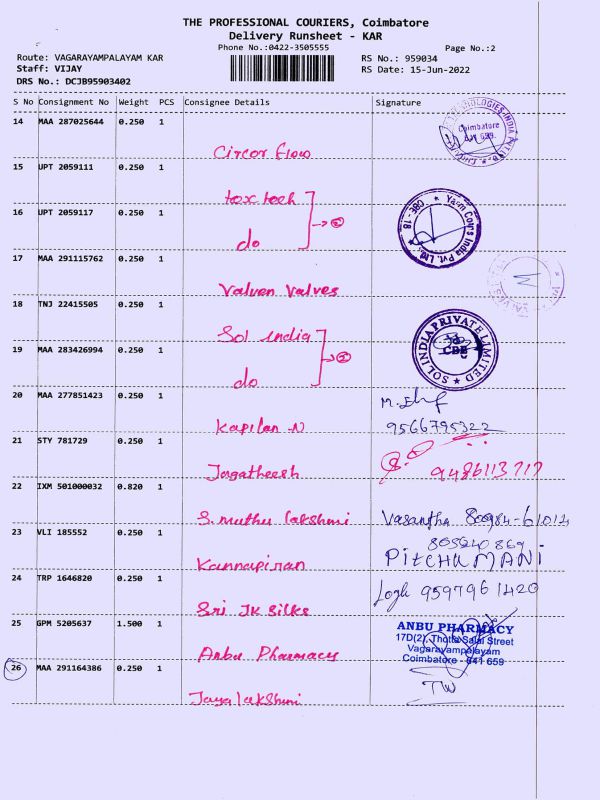 THE PROFESSIONAL COURIERS, Coimbatore
Delivery Runsheet - KAR
Phone No.:0422-3505555
Page No.:2
Route: VAGARAYAMPALAYAM KAR
Staff: VIJAY
DRS No.: DCJB95903402
RS No.: 959034
RS Date: 15-Jun-2022
S No Consignment No Weight PCS Consignee Details Signature
14 MAA 287025644 0.250 1
Circor flow
Coimbatore
641 659.
15 UPT 2059111 0.250 1
tex tech
16 UPT 2059117 0.250 1
do
→ ②
Yarm Coirs India Pvt. Ltd. CBE - 18
17 MAA 291115762 0.250 1
Valven Valves
18 TNJ 22415505 0.250 1
Sol india
19 MAA 283426994 0.250 1
do
→ ②
SOL INDIA PRIVATE LIMITED
CBE
20 MAA 277851423 0.250 1
Kapilan N
9566795322
21 STY 781729 0.250 1
Jagatheesh
9486113717
22 IXM 501000032 0.820 1
S. muthu lakshmi
Vasantha 80984-61012
23 VLI 185552 0.250 1
Kannapiran
PitCHUMANI
24 TRP 1646820 0.250 1
Sri JK Silks
Logh 9597961420
25 GPM 5205637 1.500 1
Anbu Pharmacy
ANBU PHARMACY
17D(2), Thotta Salai Street
Vagarayampalayam
Coimbatore - 641 659
26 MAA 291164386 0.250 1
Jayalakshmi